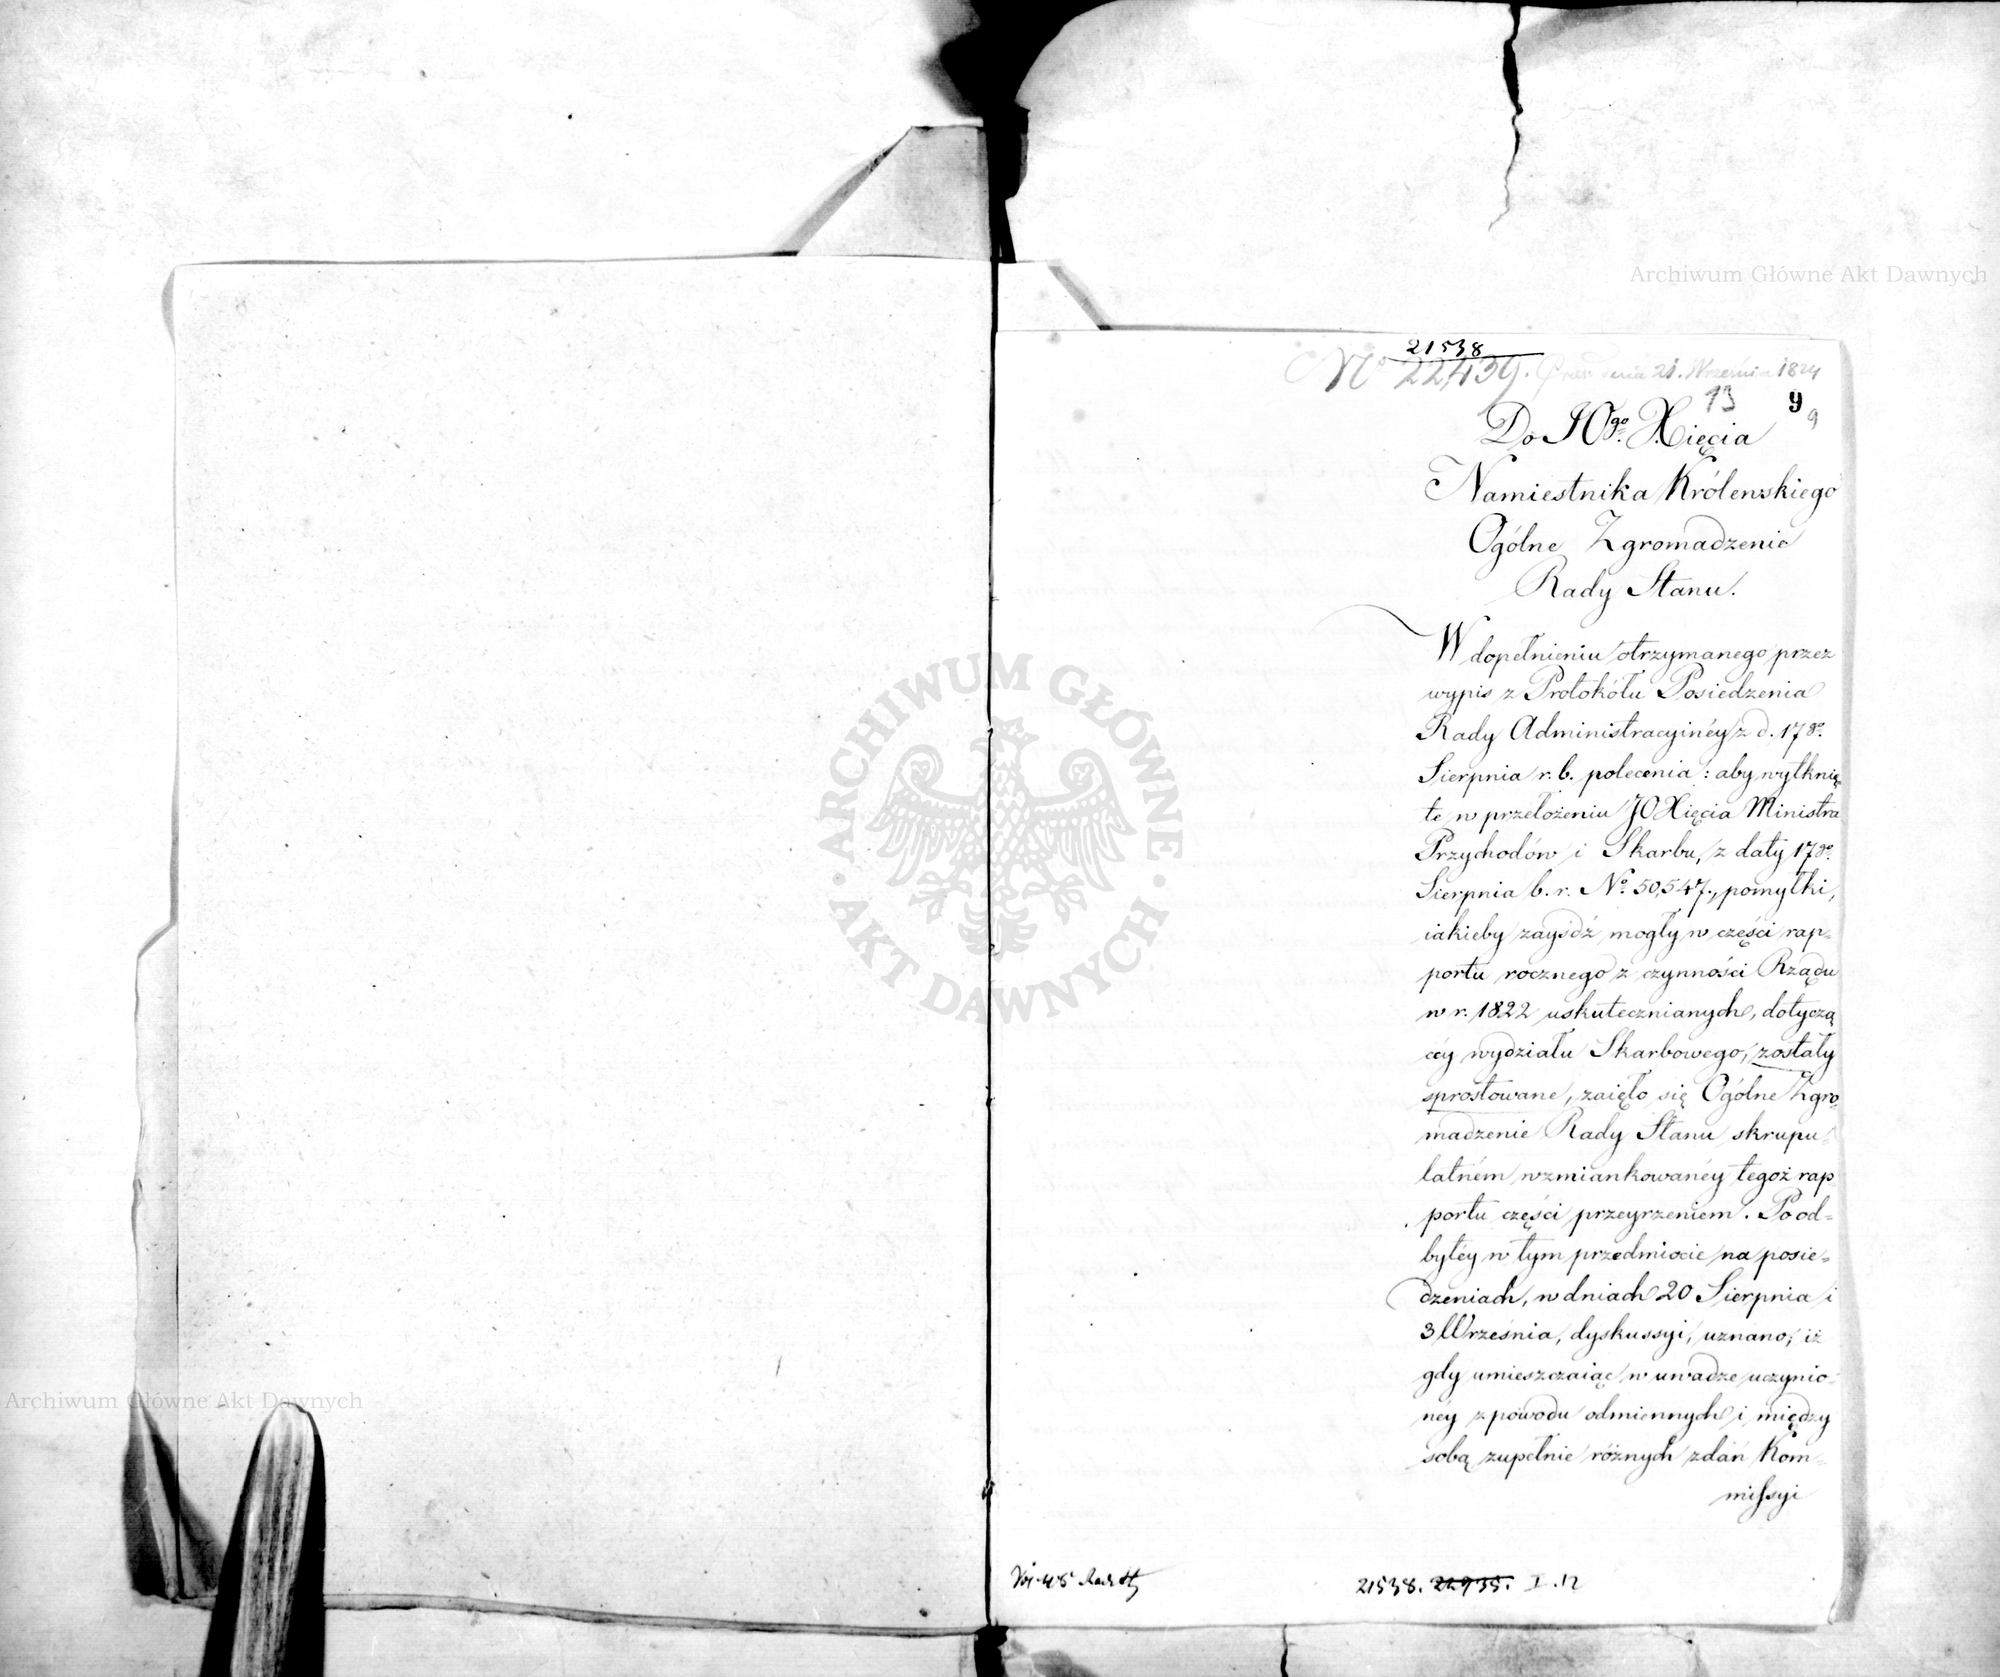 21538
No 22439. Pres. dnia 21. Września 1824
13 9 9
Do JOgo. Xięcia
Namiestnika Królewskiego
Ogólne Zgromadzenie
Rady Stanu.
W dopełnieniu otrzymanego przez
wypis z Protokółu Posiedzenia
Rady Administracyinéy z d. 17go.
Sierpnia r. b. polecenia: aby wytknię
te w przełożeniu JOXięcia Ministra
Przychodów i Skarbu, z daty 17go.
Sierpnia b. r. No. 50,547., pomyłki,
iakieby zayśdź mogły w części rap=
portu rocznego z czynności Rządu
w r. 1822 uskutecznianych, dotyczą
céy wydziału Skarbowego, zostały
sprostowane, zaięło się Ogólne Zgro
madzenie Rady Stanu skrupu=
latném wzmiankowanéy tegoż rap
portu części przeyrzeniem. Po od=
bytéy w tym przedmiocie na posie=
dzeniach, w dniach 20 Sierpnia i
3 Września, dyskussyi, uznano, iż
gdy umieszczaiąc w uwadze uczynio=
néy z powodu odmiennych i między
sobą zupełnie różnych zdań Kom=
missyi
21538. 22935. I. 12
ARCHIWUM GŁÓWNE AKT DAWNYCH
Archiwum Główne Akt Dawnych
Archiwum Główne Akt Dawnych